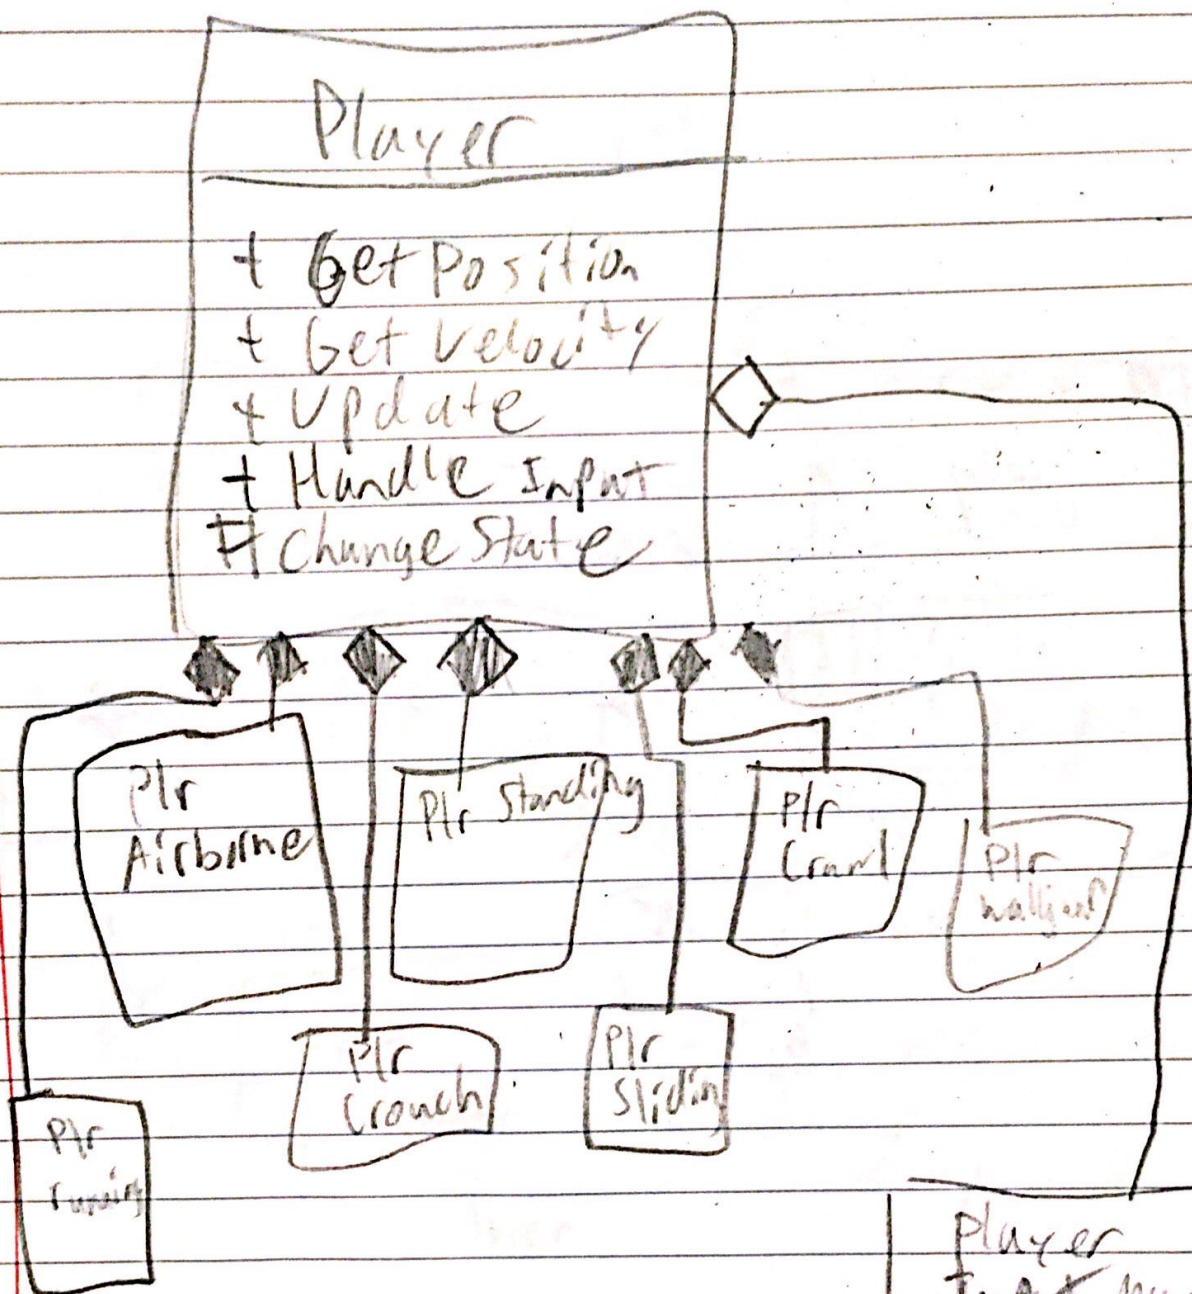 Player
+ Get Position
+ Get Velocity
+ Update
+ Handle Input
# Change State
Plr
Airborne
Plr Standing
Plr
Crawl
Plr
Plr
Crouch
Plr
Sliding
Plr
runing
Player